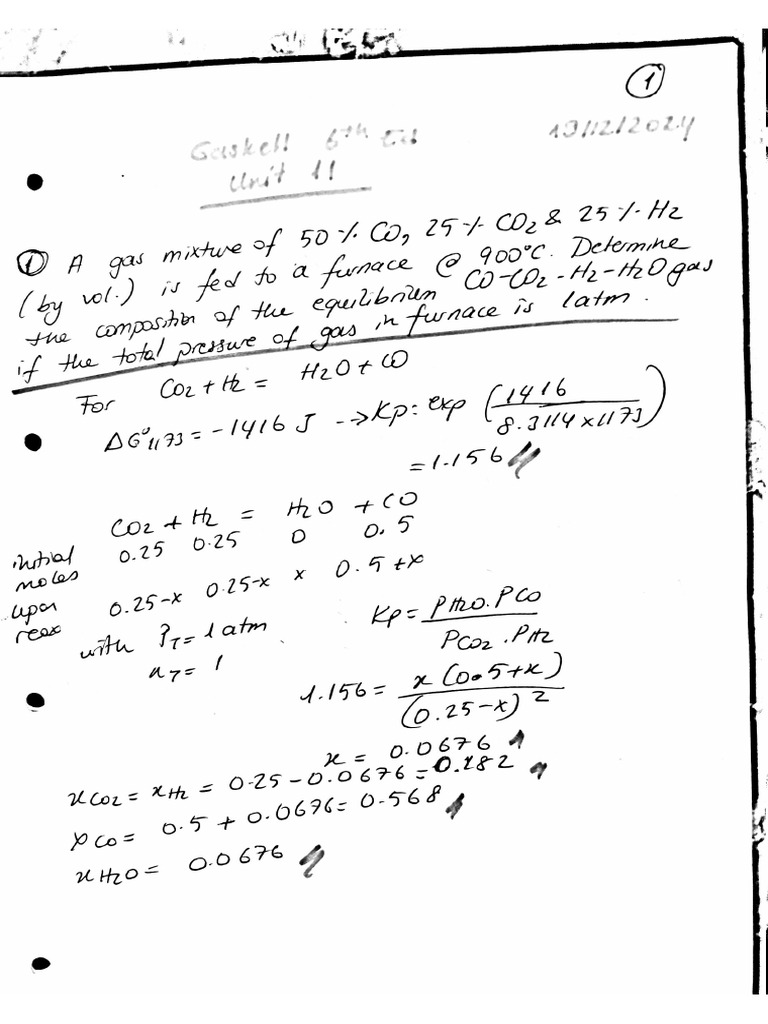 1
Gaskell 6th Ed 19/12/2024
Unit 11
① A gas mixture of 50 % CO, 25 % CO2 & 25 % H2
(by vol.) is fed to a furnace @ 900°C. Determine
the composition of the equilibrium CO-CO2-H2-H2O gas
if the total pressure of gas in furnace is 1 atm.
For CO2 + H2 = H2O + CO
ΔG°1173 = -1416 J → Kp: exp (1416 / 8.3114 x 1173)
= 1.156
CO2 + H2 = H2O + CO
initial moles 0.25 0.25 0 0.5
upon reax 0.25-x 0.25-x x 0.5+x
with PT = 1 atm
nT = 1
Kp = PH2O.PCO / PCO2.PH2
1.156 = x(0.5+x) / (0.25-x)2
x = 0.0676
xCO2 = xH2 = 0.25 - 0.0676 = 0.182
xCO = 0.5 + 0.0676 = 0.568
xH2O = 0.0676